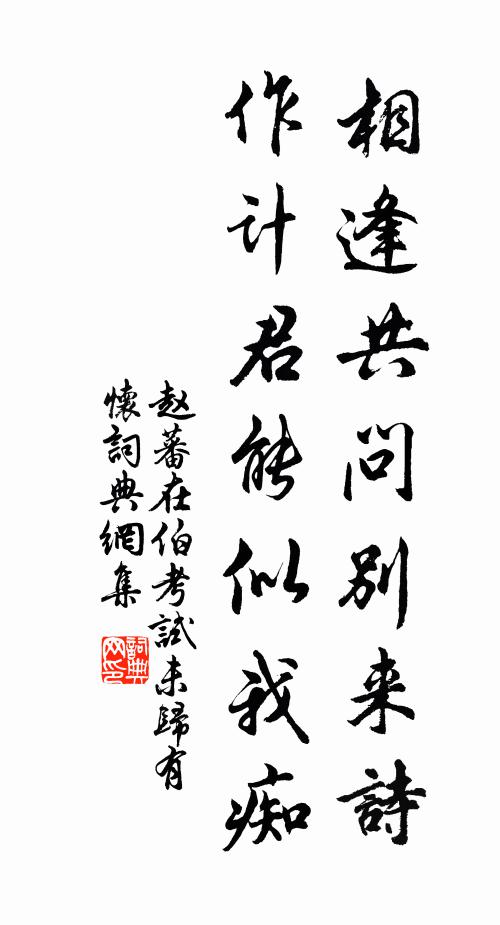 相逢共问别来詩
作计君能似我痴
赵蕃在伯考試未歸有
懷詞典網集
詞典
网印